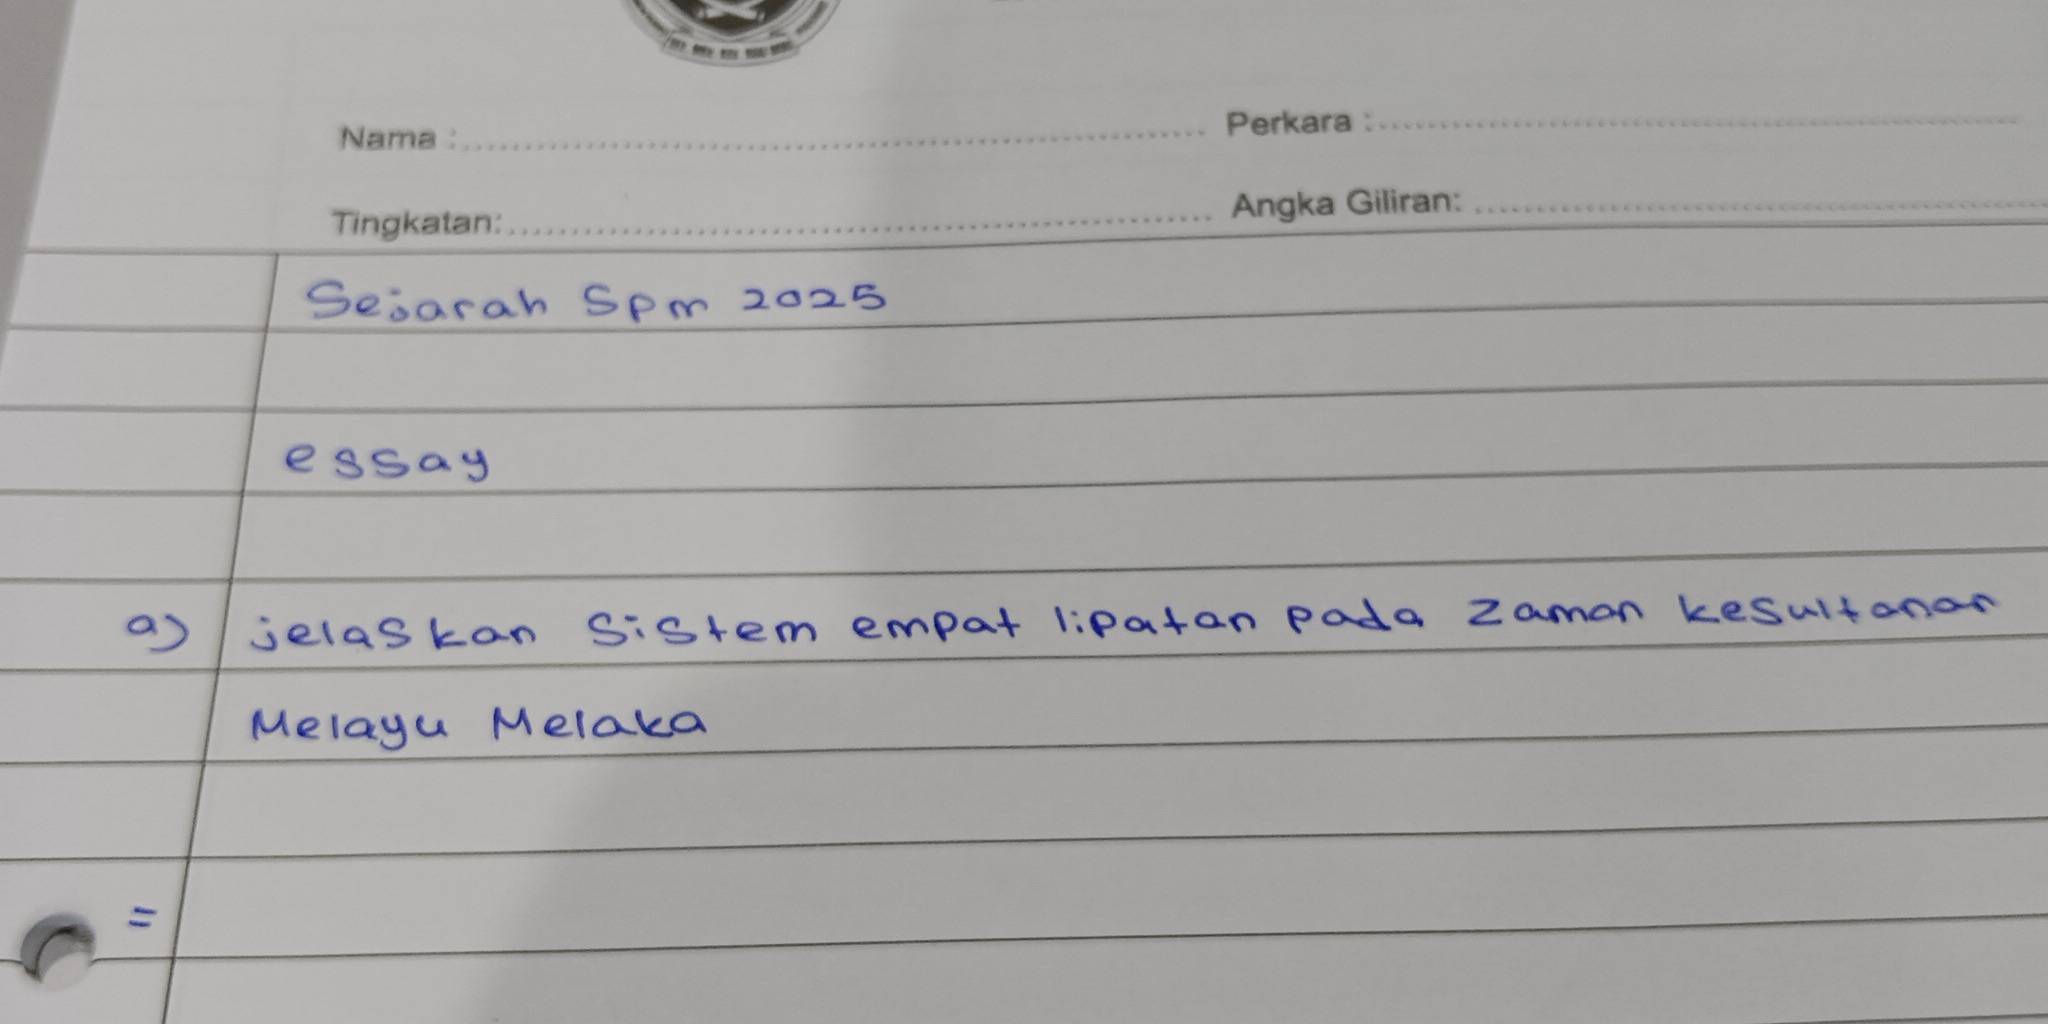 Nama : Perkara :
Tingkatan: Angka Giliran:
Sejarah Spm 2025
essay
a) jelaskan Sistem empat lipatan pada Zaman kesultanan
Melayu Melaka
=